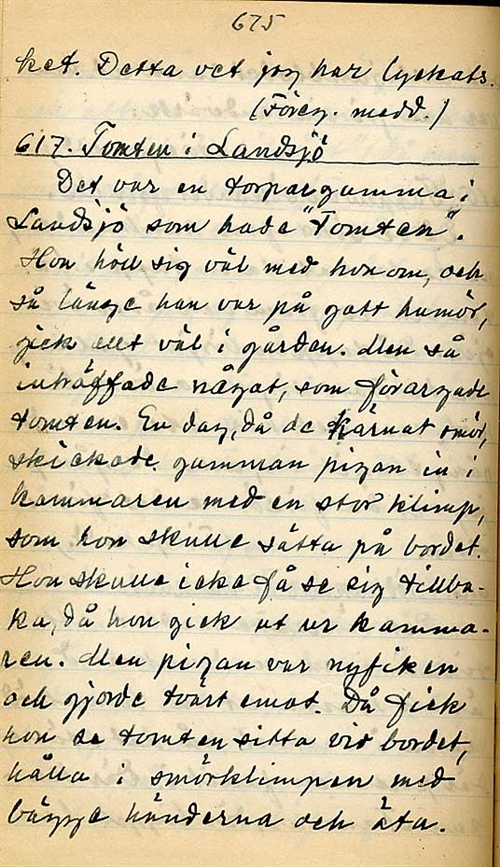 675
ket. Detta vet jag har lyckats.
(Föreg. medd.)
617. Tomten i Landsjö
Det var en torpargumma i
Landsjö som hade "Tomten".
Hon höll sig väl med honom, och
så länge han var på gott humör,
gick allt väl i gården. Men så
inträffade något, som förargade
tomten. En dag, då de kärnat smör,
skickade gumman pigan in i
kammaren med en stor klimp,
som hon skulle sätta på bordet.
Hon skulle icke få se sig tillba-
ka, då hon gick ut ur kamma-
ren. Men pigan var nyfiken
och gjorde tvärt emot. Då fick
hon se tomten sitta vid bordet,
hålla i smörklimpen med
bägge händerna och äta.